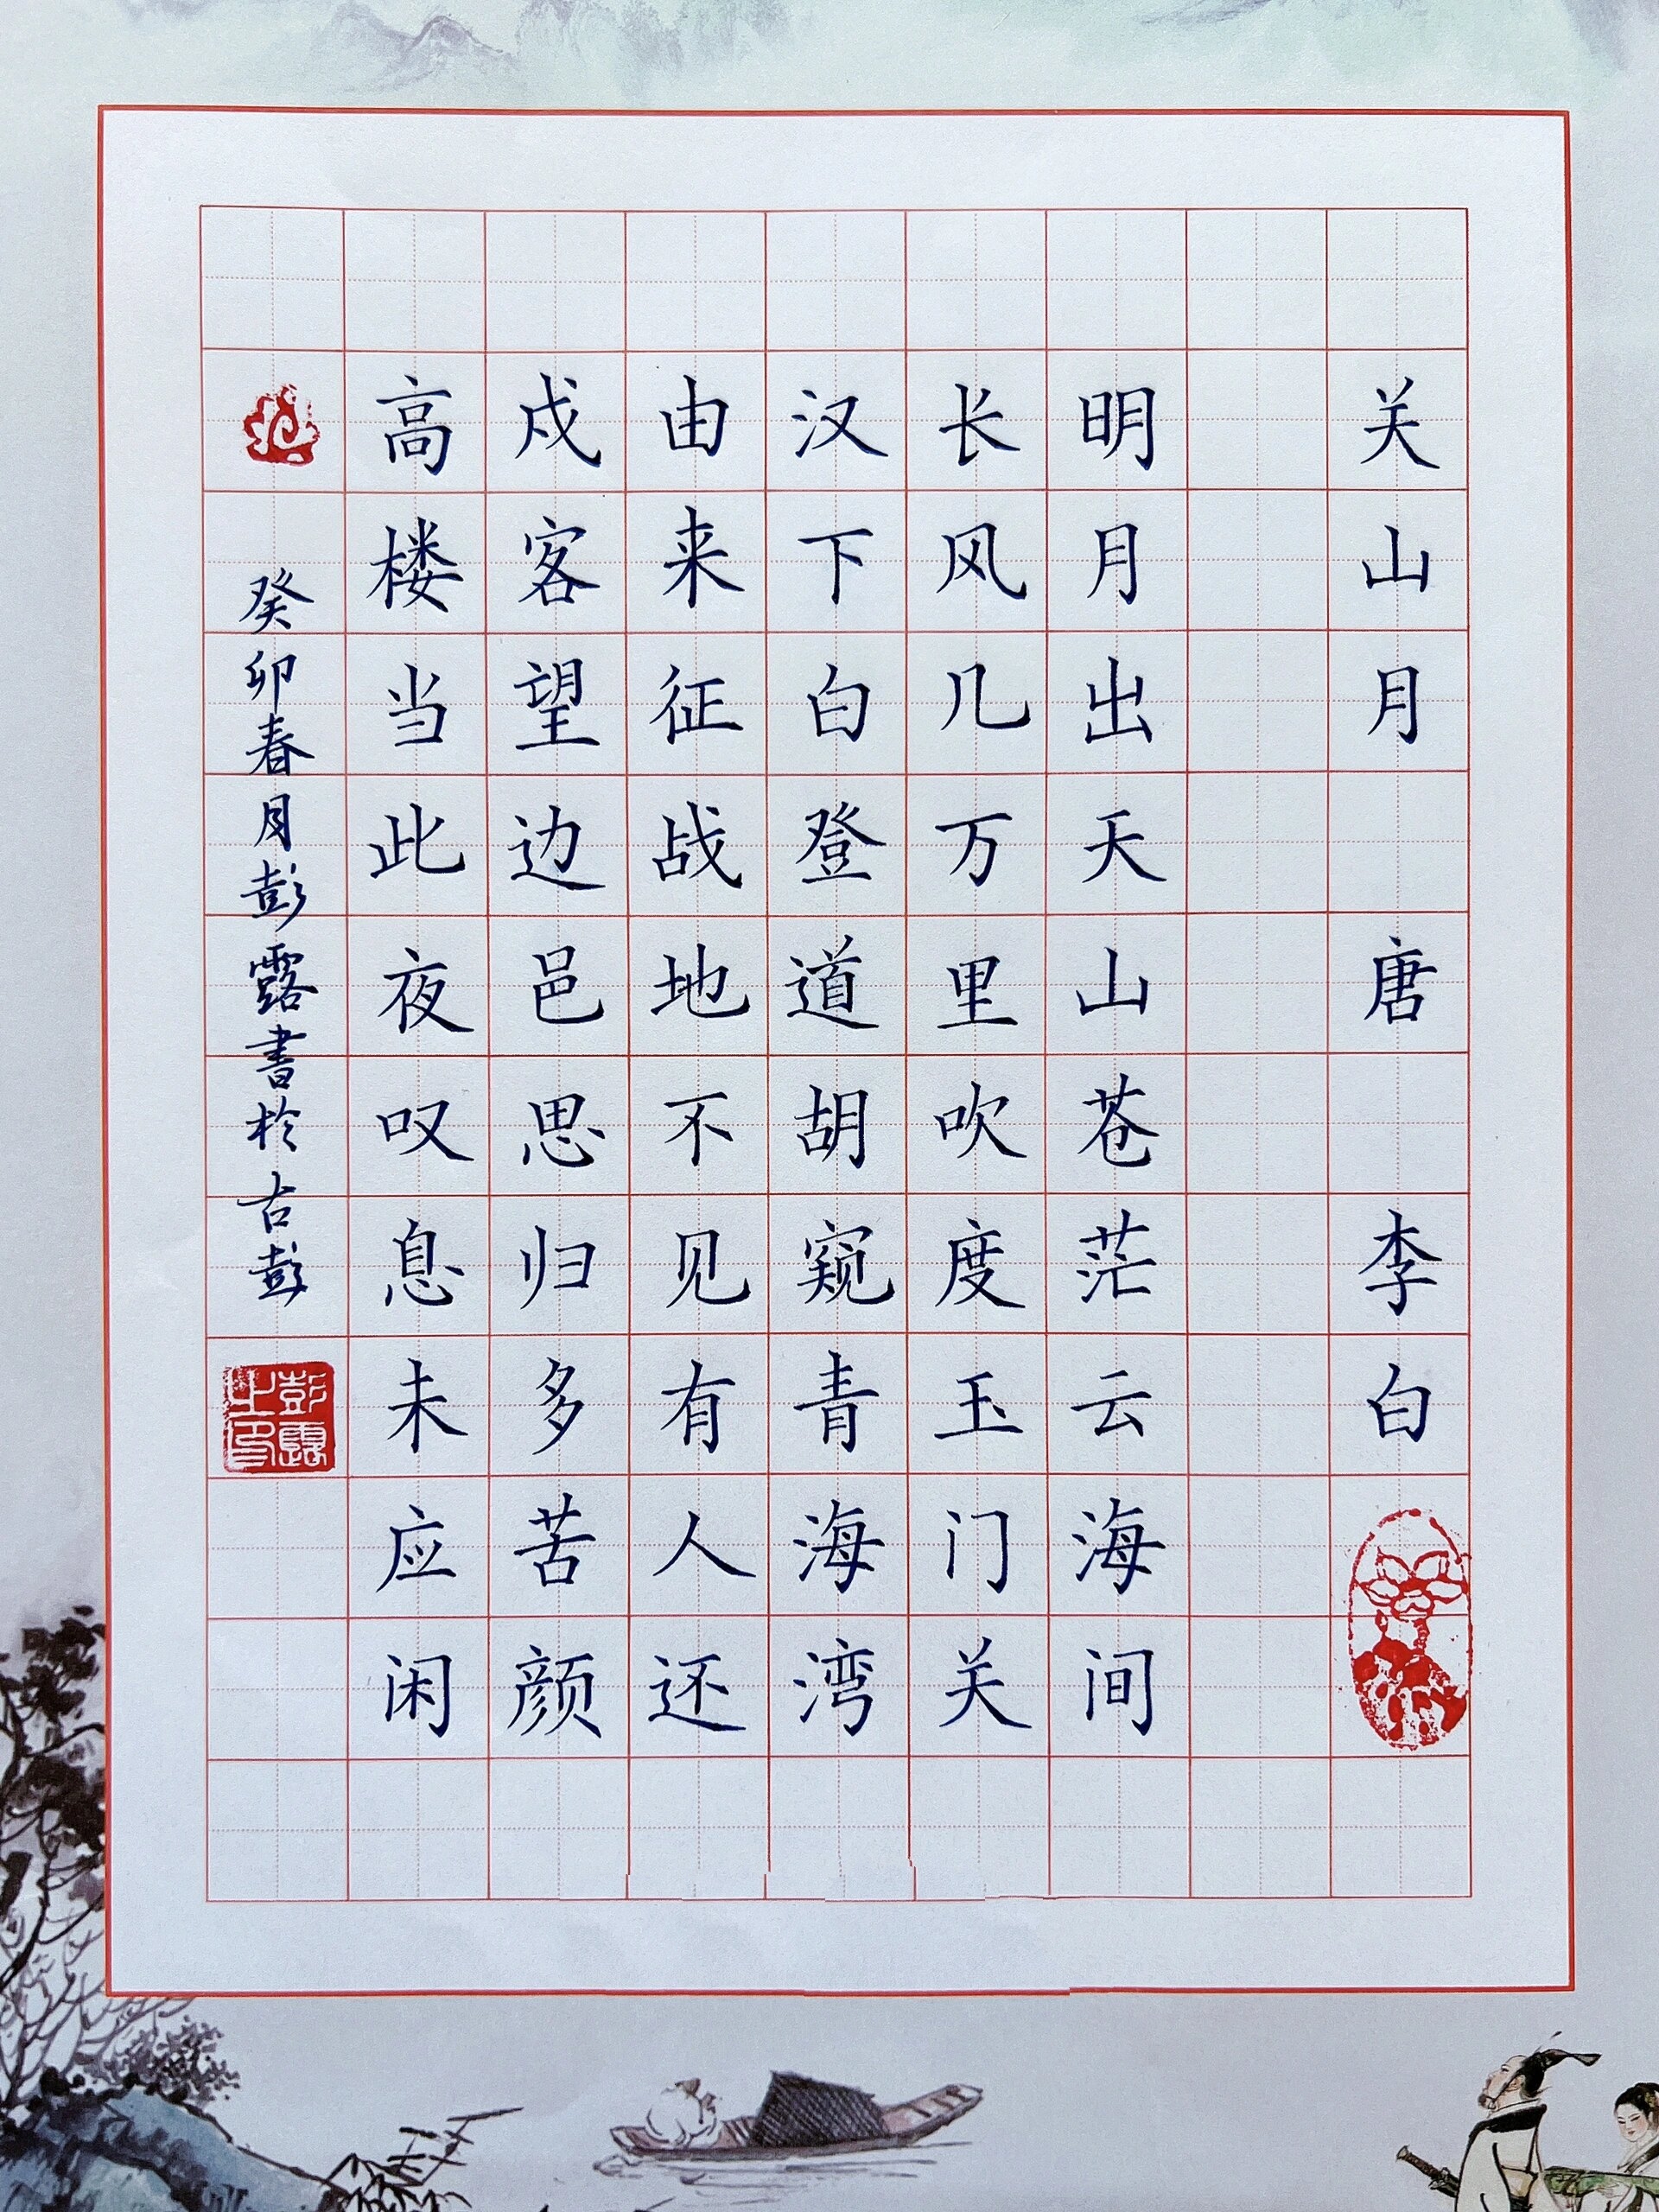 关山月 唐 李白
明月出天山苍茫云海间
长风几万里吹度玉门关
汉下白登道胡窥青海湾
由来征战地不见有人还
戍客望边邑思归多苦颜
高楼当此夜叹息未应闲
癸卯春月彭露書於古彭
彭露之印